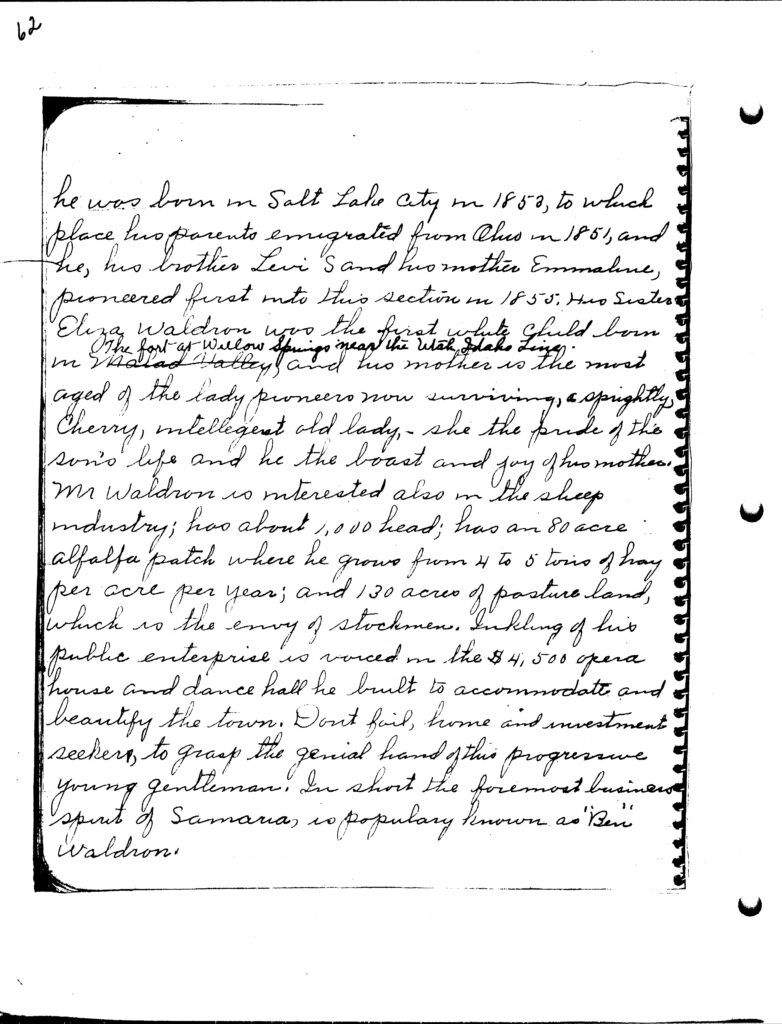 62
he was born in Salt Lake City in 1853, to which
place his parents emigrated from Ohio in 1851, and
he, his brother Levi S and his mother Emmaline,
pioneered first into this section in 1855. His Sister
Eliza Waldron was the first white child born
The fort at Willow Springs near the Utah Idaho Line.
in Malad Valley, and his mother is the most
aged of the lady pioneers now surviving, a sprightly,
Cherry, intellegent old lady, - she the pride of the
son's life and he the boast and joy of his mother.
Mr Waldron is interested also in the sheep
industry; has about 1,000 head; has an 80 acre
alfalfa patch where he grows from 4 to 5 tons of hay
per acre per year; and 130 acres of pasture land,
which is the envy of stockmen. Inkling of his
public enterprise is voiced in the $4,500 opera
house and dance hall he built to accommodate and
beautify the town. Dont fail, home and investment
seekers, to grasp the genial hand of this progressive
young gentleman. In short the foremost business
spirit of Samaria, is populary known as "Ben"
Waldron.